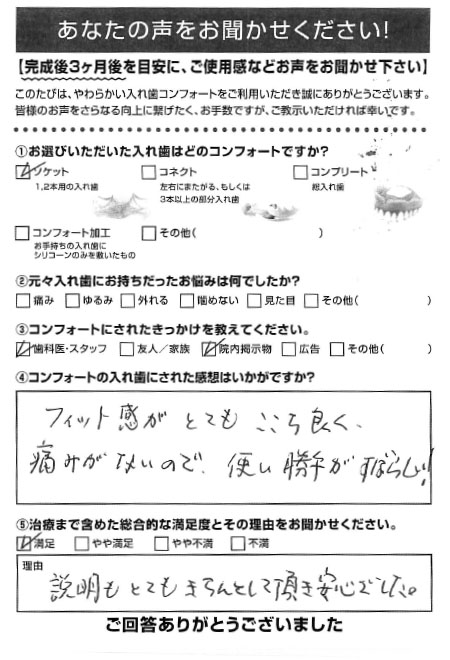 あなたの声をお聞かせください!
【完成後3ヶ月後を目安に、ご使用感などお声をお聞かせ下さい】
このたびは、やわらかい入れ歯コンフォートをご利用いただき誠にありがとうございます。
皆様のお声をさらなる向上に繋げたく、お手数ですが、ご教示いただければ幸いです。
①お選びいただいた入れ歯はどのコンフォートですか?
☑ソケット □コネクト □コンプリート
1,2本用の入れ歯 左右にまたがる、もしくは 総入れ歯
3本以上の部分入れ歯
□コンフォート加工 □その他( )
お手持ちの入れ歯に
シリコーンのみを敷いたもの
②元々入れ歯にお持ちだったお悩みは何でしたか?
□痛み □ゆるみ □外れる □噛めない □見た目 □その他( )
③コンフォートにされたきっかけを教えてください。
☑歯科医・スタッフ □友人/家族 ☑院内掲示物 □広告 □その他( )
④コンフォートの入れ歯にされた感想はいかがですか?
フィット感がとてもここち良く、
痛みがないので、使い勝手がすばらしい!
⑤治療まで含めた総合的な満足度とその理由をお聞かせください。
☑満足 □やや満足 □やや不満 □不満
理由
説明もとてもきちんとして頂き安心でした。
ご回答ありがとうございました